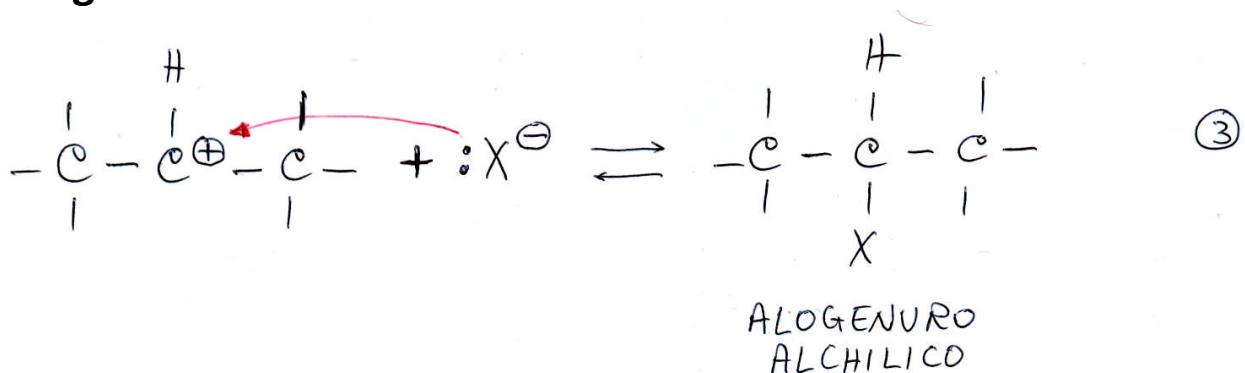 H H
– C – C⊕ – C – + :X⊖ ⇌ – C – C – C – ③
X
ALOGENURO
ALCHILICO